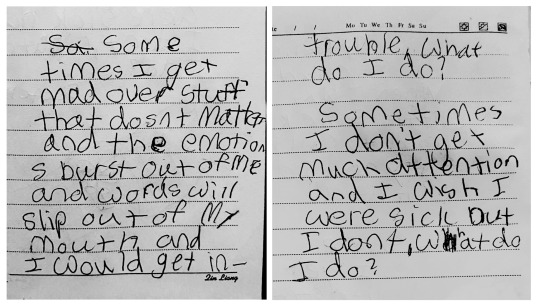 So Some
times I get
mad over stuff
that dosnt matter
and the emotion
s burst out of me
and words will
slip out of My
mouth and
I would get in-
Mo Tu We Th Fr Sa Su
trouble, What
do I do?
Sometimes
I don't get
much attention
and I wish I
were sick but
I dont, What do
I do?